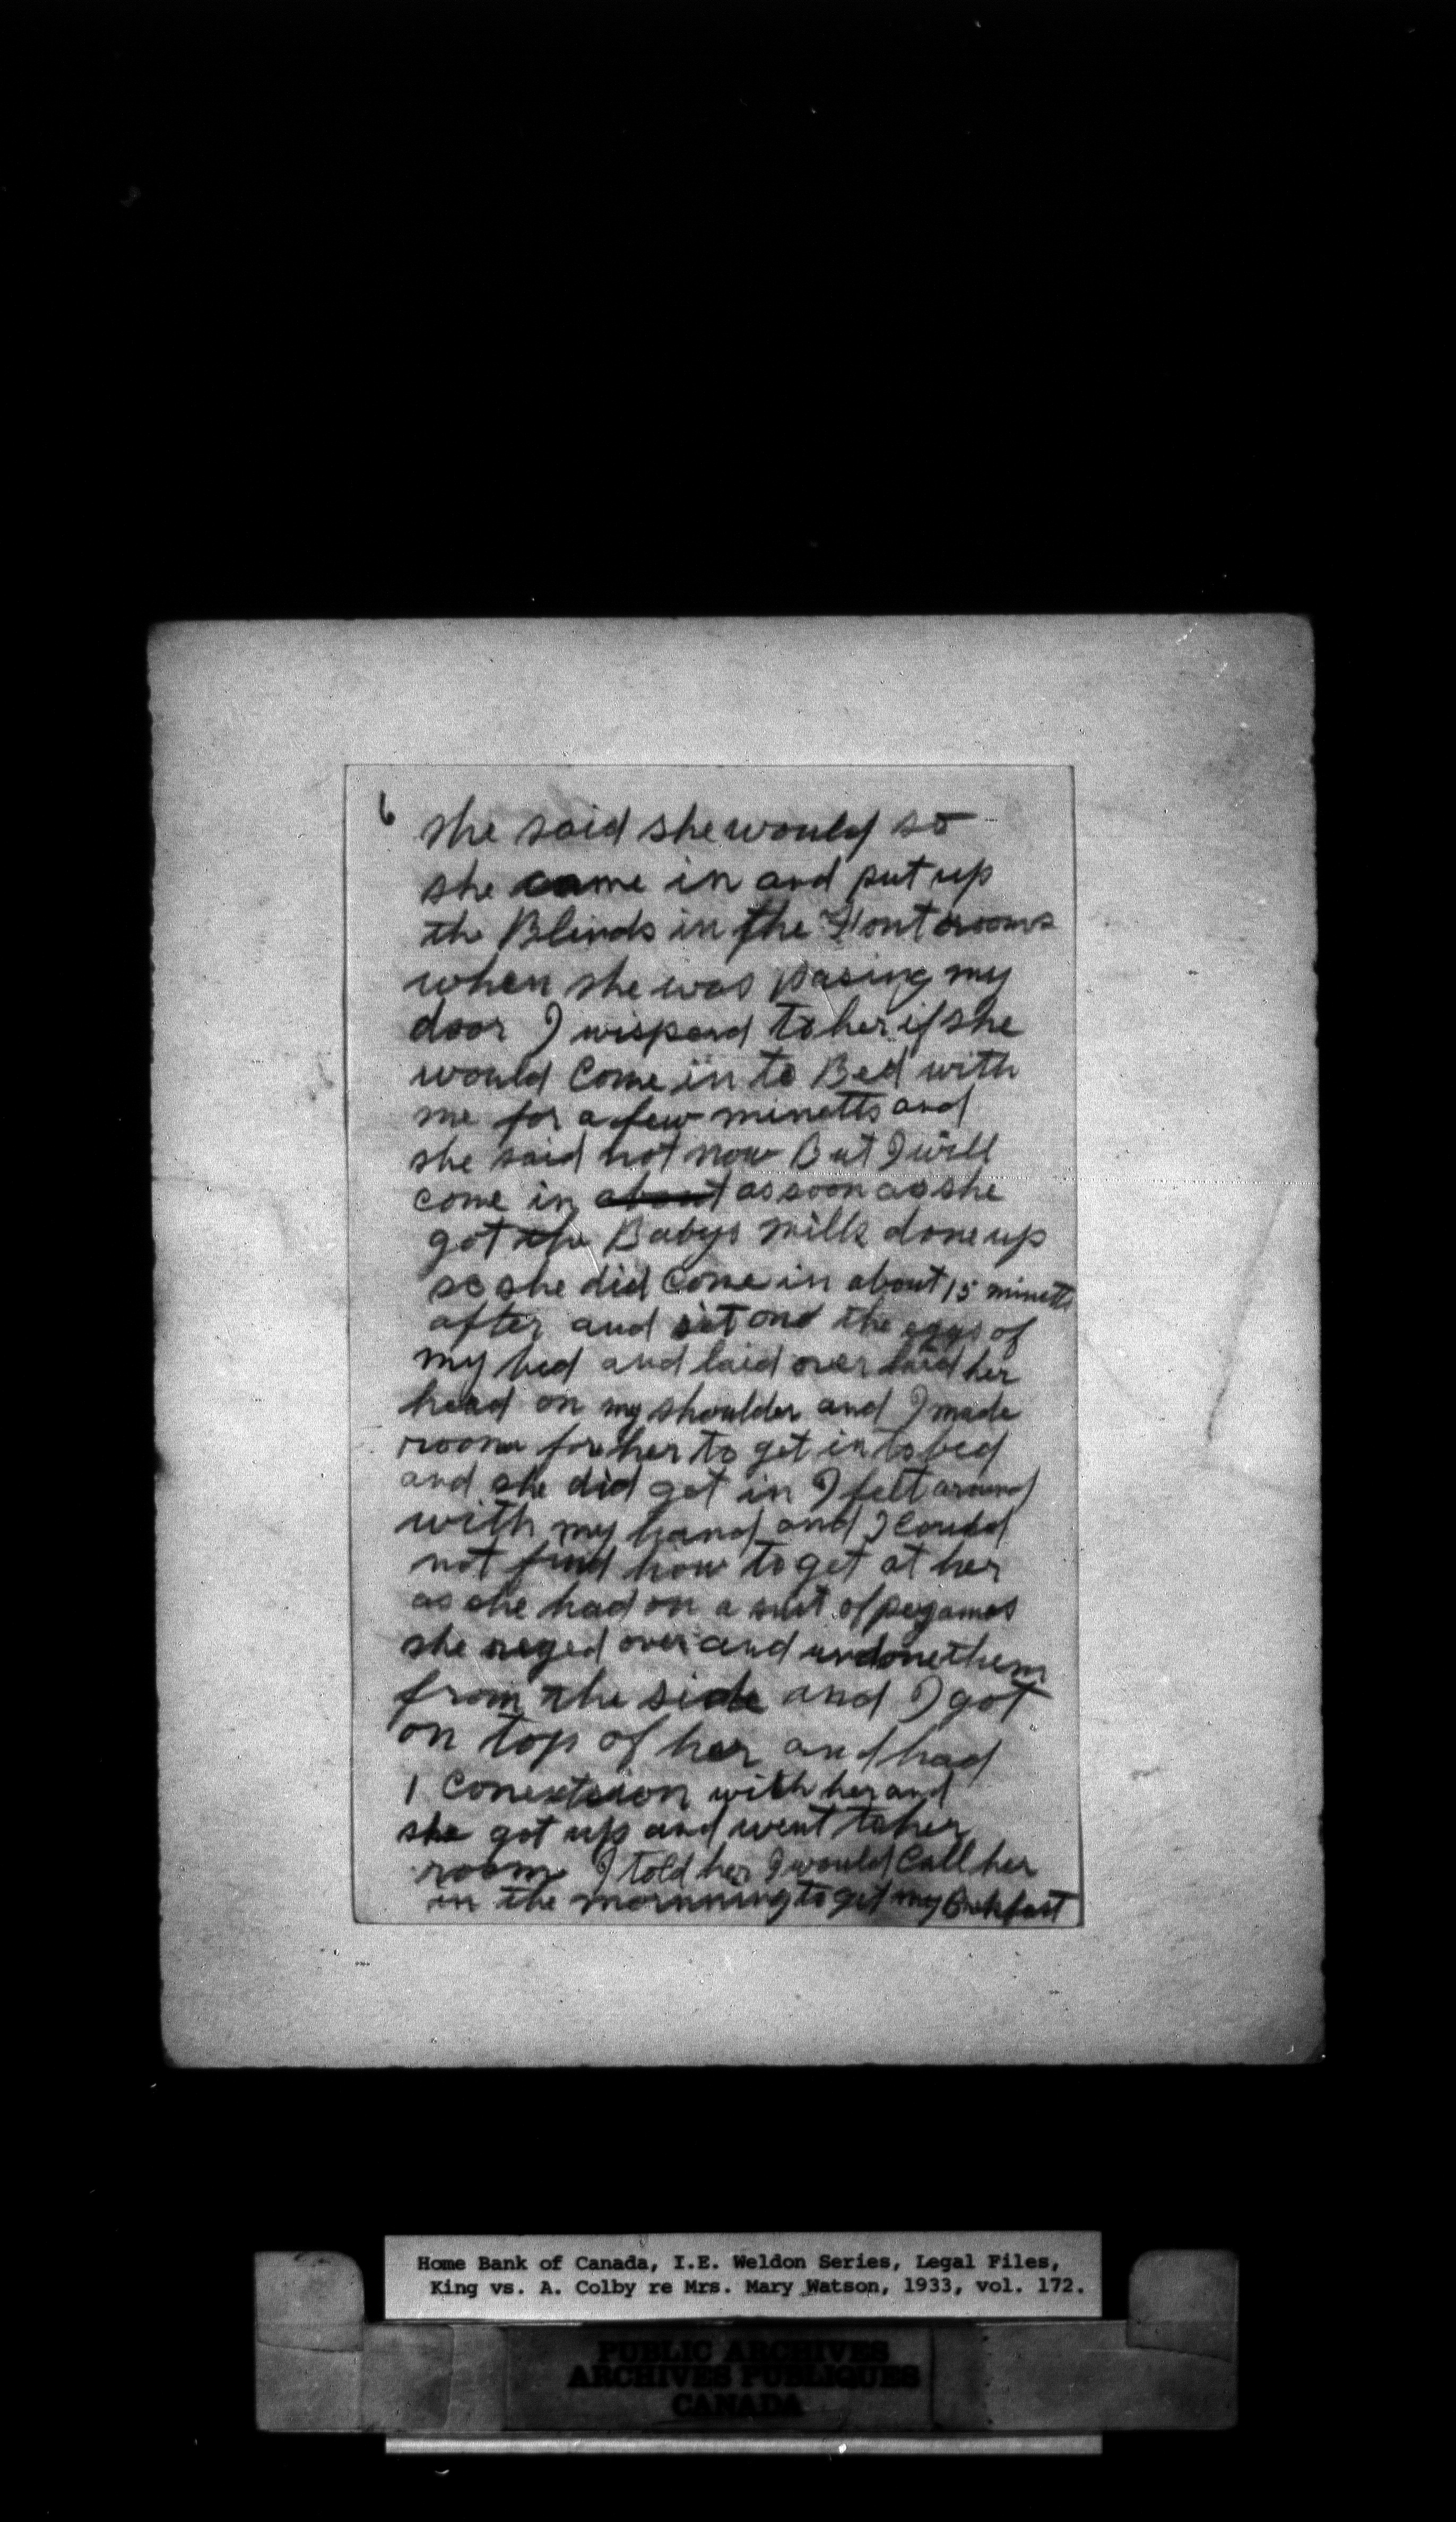 6 she said she would so
she came in and put up
th Blinds in the Front rooms
when she was pasing my
door I wisperd to her if she
would Come in to Bed with
me for a few minetts and
she said not now But I will
come in about as soon as she
got the Babys milk done up
so she did Come in about 15 minetts
after and sit one the egge of
my bed and laid over laid her
head on my shoulder and I made
room for her to get in to bed
and she did get in I felt around
with my hand and I Could
not find how to get at her
as she had on a suit of pegames
she over and undone them
from the side and I got
on top of her and had
1 Conextsion with her and
she got up and went to her
room I told her I would Call her
in the mornning to get my Brekfast
Home Bank of Canada, I.E. Weldon Series, Legal Files,
King vs. A. Colby re Mrs. Mary Watson, 1933, vol. 172.
PUBLIC ARCHIVES
ARCHIVES PUBLIQUES
CANADA